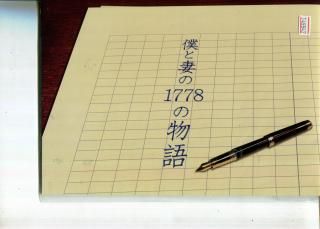 僕と妻の1778の物語